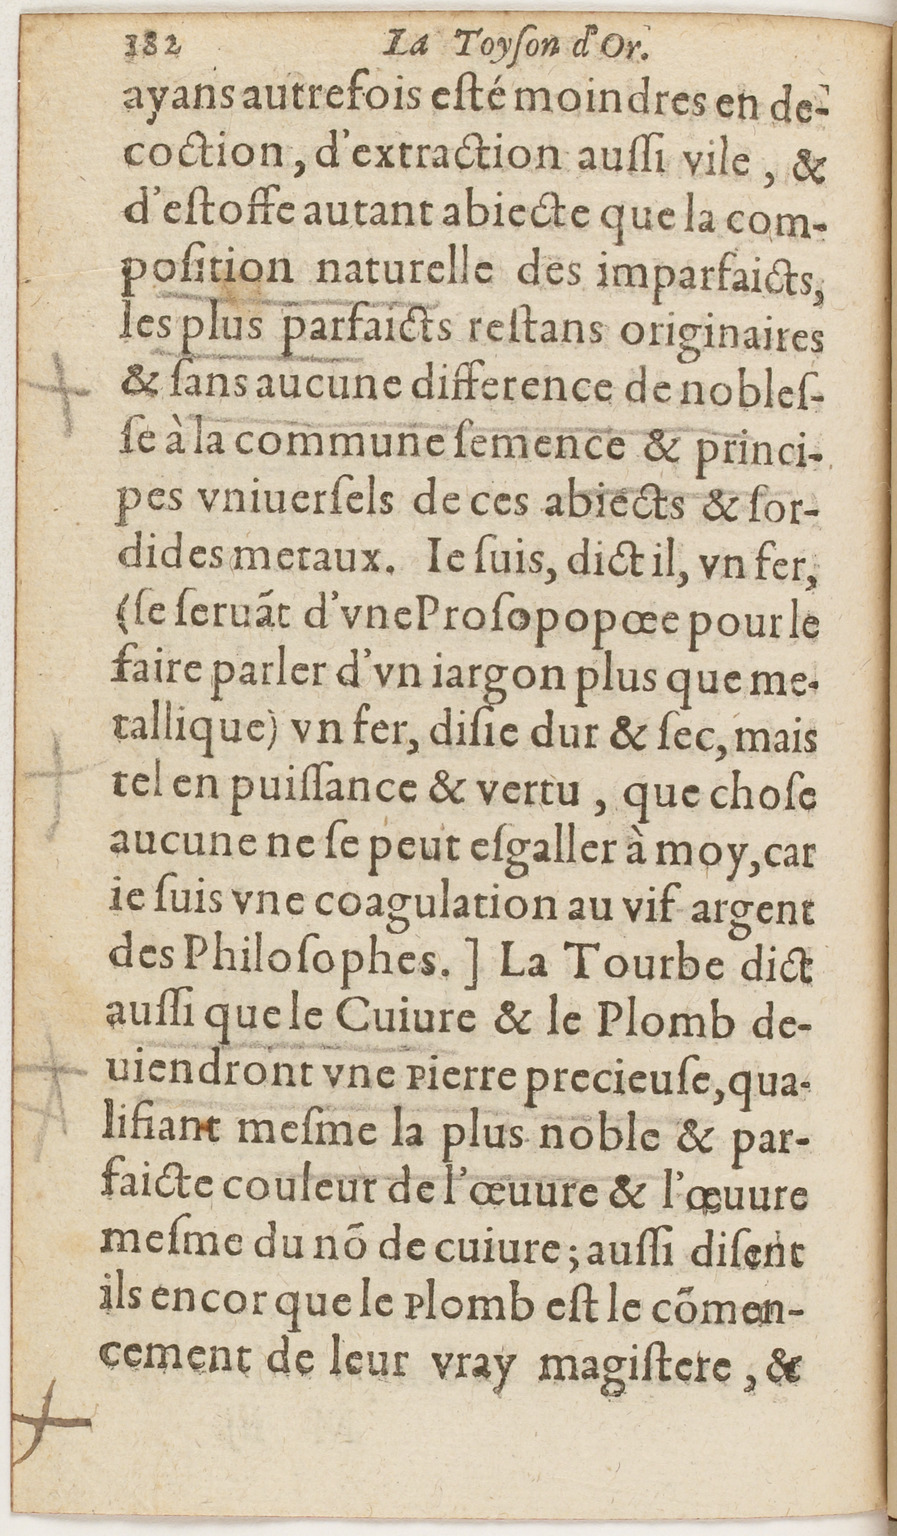 182 La Toyſon d'Or.
ayans autrefois eſté moindres en de-
coction, d'extraction auſſi vile, &
d'eſtoffe autant abiecte que la com-
poſition naturelle des imparfaicts,
les plus parfaicts reſtans originaires
& ſans aucune difference de nobleſ-
ſe à la commune ſemence & princi-
pes vniuerſels de ces abiects & ſor-
dides metaux. Ie ſuis, dict il, vn fer,
(ſe ſeruãt d'vne Proſopopœe pour le
faire parler d'vn iargon plus que me-
tallique) vn fer, diſie dur & ſec, mais
tel en puiſſance & vertu, que choſe
aucune ne ſe peut eſgaller à moy, car
ie ſuis vne coagulation au vif argent
des Philoſophes.] La Tourbe dict
auſſi que le Cuiure & le Plomb de-
uiendront vne Pierre precieuſe, qua-
lifiant meſme la plus noble & par-
faicte couleur de l'œuure & l'œuure
meſme du nõ de cuiure; auſſi diſent
ils encor que le Plomb eſt le cõmen-
cement de leur vray magiſtere, &